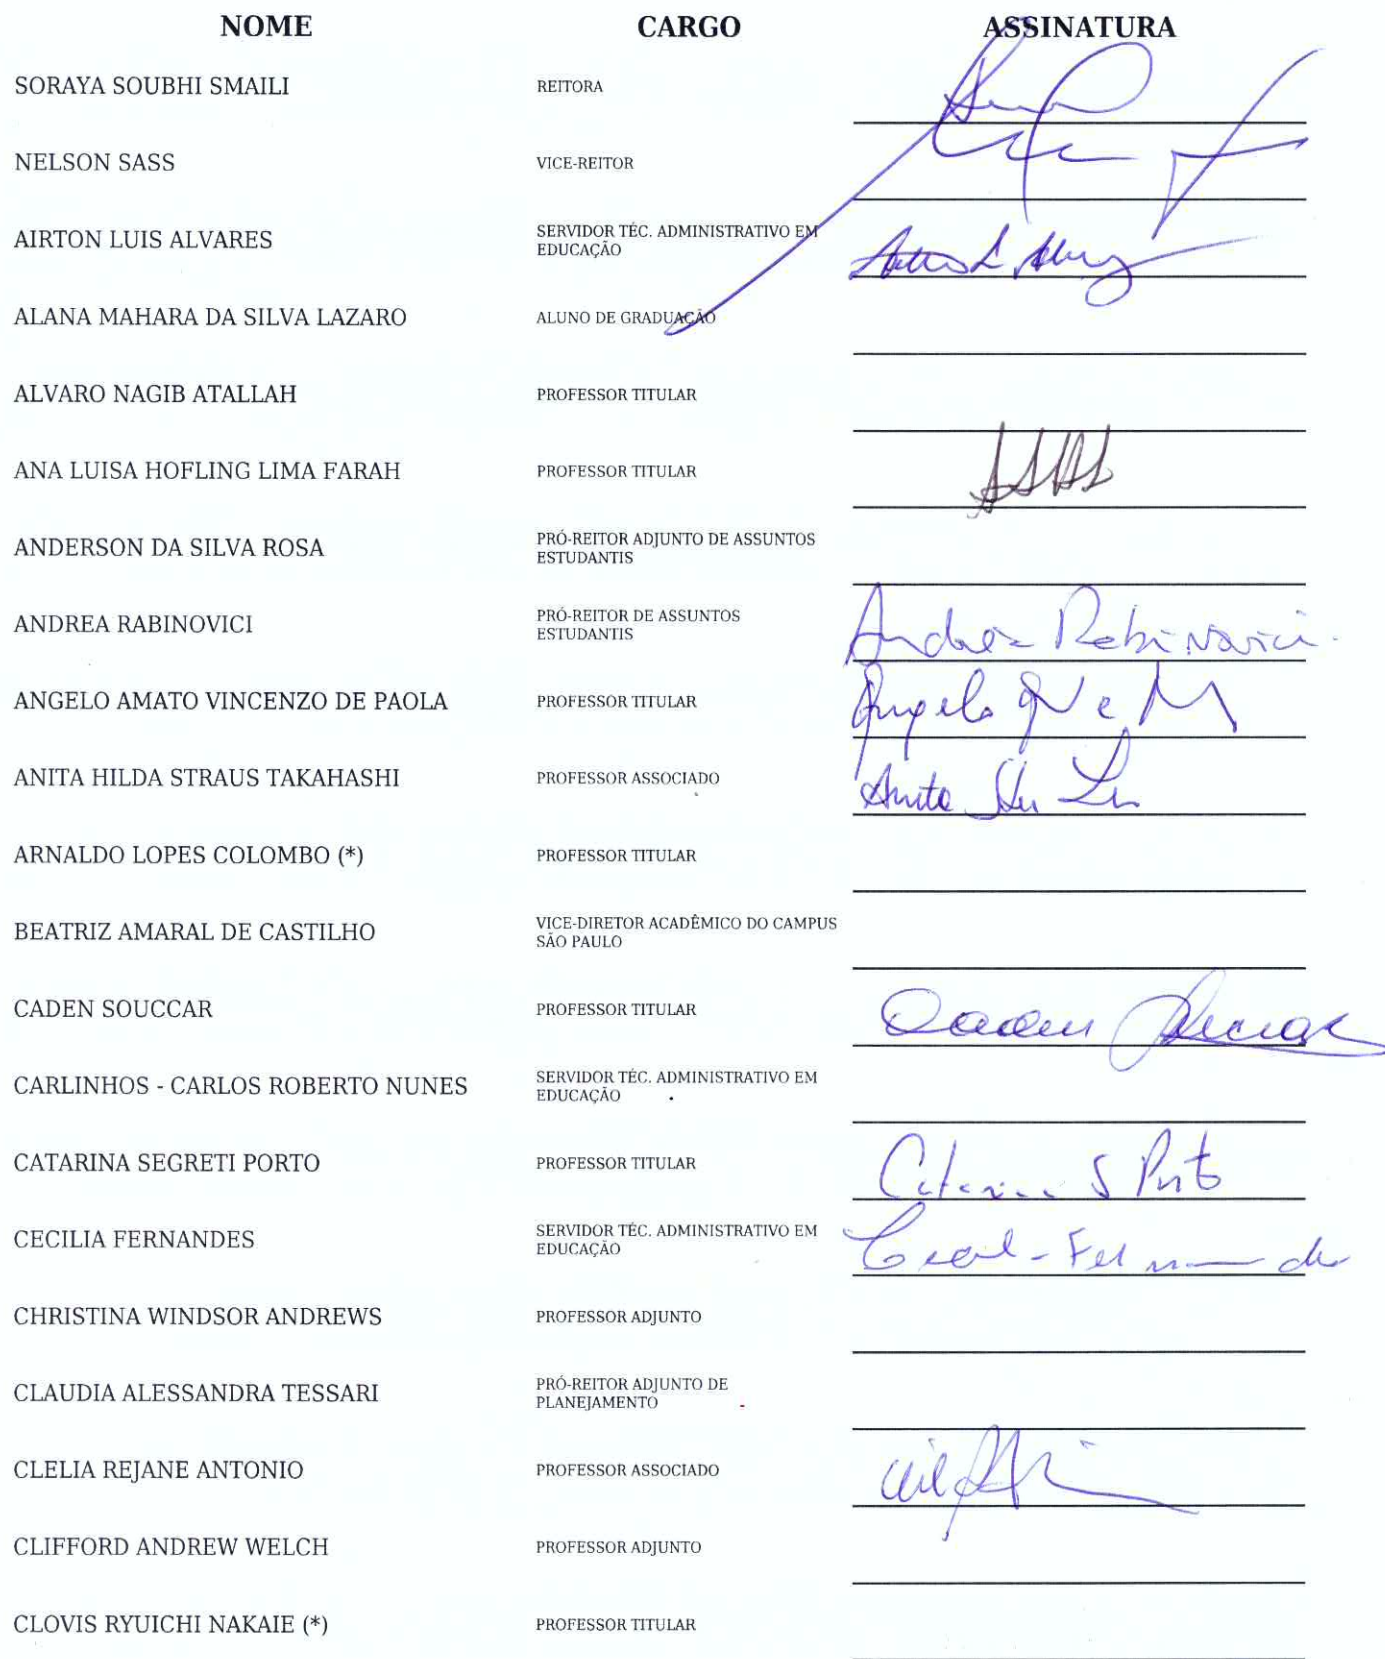 NOME CARGO ASSINATURA
SORAYA SOUBHI SMAILI REITORA
NELSON SASS VICE-REITOR
AIRTON LUIS ALVARES SERVIDOR TÉC. ADMINISTRATIVO EM
EDUCAÇÃO
ALANA MAHARA DA SILVA LAZARO ALUNO DE GRADUAÇÃO
ALVARO NAGIB ATALLAH PROFESSOR TITULAR
ANA LUISA HOFLING LIMA FARAH PROFESSOR TITULAR
ANDERSON DA SILVA ROSA PRÓ-REITOR ADJUNTO DE ASSUNTOS
ESTUDANTIS
ANDREA RABINOVICI PRÓ-REITOR DE ASSUNTOS
ESTUDANTIS Andrea Rabinovici
ANGELO AMATO VINCENZO DE PAOLA PROFESSOR TITULAR Angelo
ANITA HILDA STRAUS TAKAHASHI PROFESSOR ASSOCIADO Anita
ARNALDO LOPES COLOMBO (*) PROFESSOR TITULAR
BEATRIZ AMARAL DE CASTILHO VICE-DIRETOR ACADÊMICO DO CAMPUS
SÃO PAULO
CADEN SOUCCAR PROFESSOR TITULAR Caden Souccar
CARLINHOS - CARLOS ROBERTO NUNES SERVIDOR TÉC. ADMINISTRATIVO EM
EDUCAÇÃO
CATARINA SEGRETI PORTO PROFESSOR TITULAR Catarina S Porto
CECILIA FERNANDES SERVIDOR TÉC. ADMINISTRATIVO EM
EDUCAÇÃO
CHRISTINA WINDSOR ANDREWS PROFESSOR ADJUNTO
CLAUDIA ALESSANDRA TESSARI PRÓ-REITOR ADJUNTO DE
PLANEJAMENTO
CLELIA REJANE ANTONIO PROFESSOR ASSOCIADO
CLIFFORD ANDREW WELCH PROFESSOR ADJUNTO
CLOVIS RYUICHI NAKAIE (*) PROFESSOR TITULAR